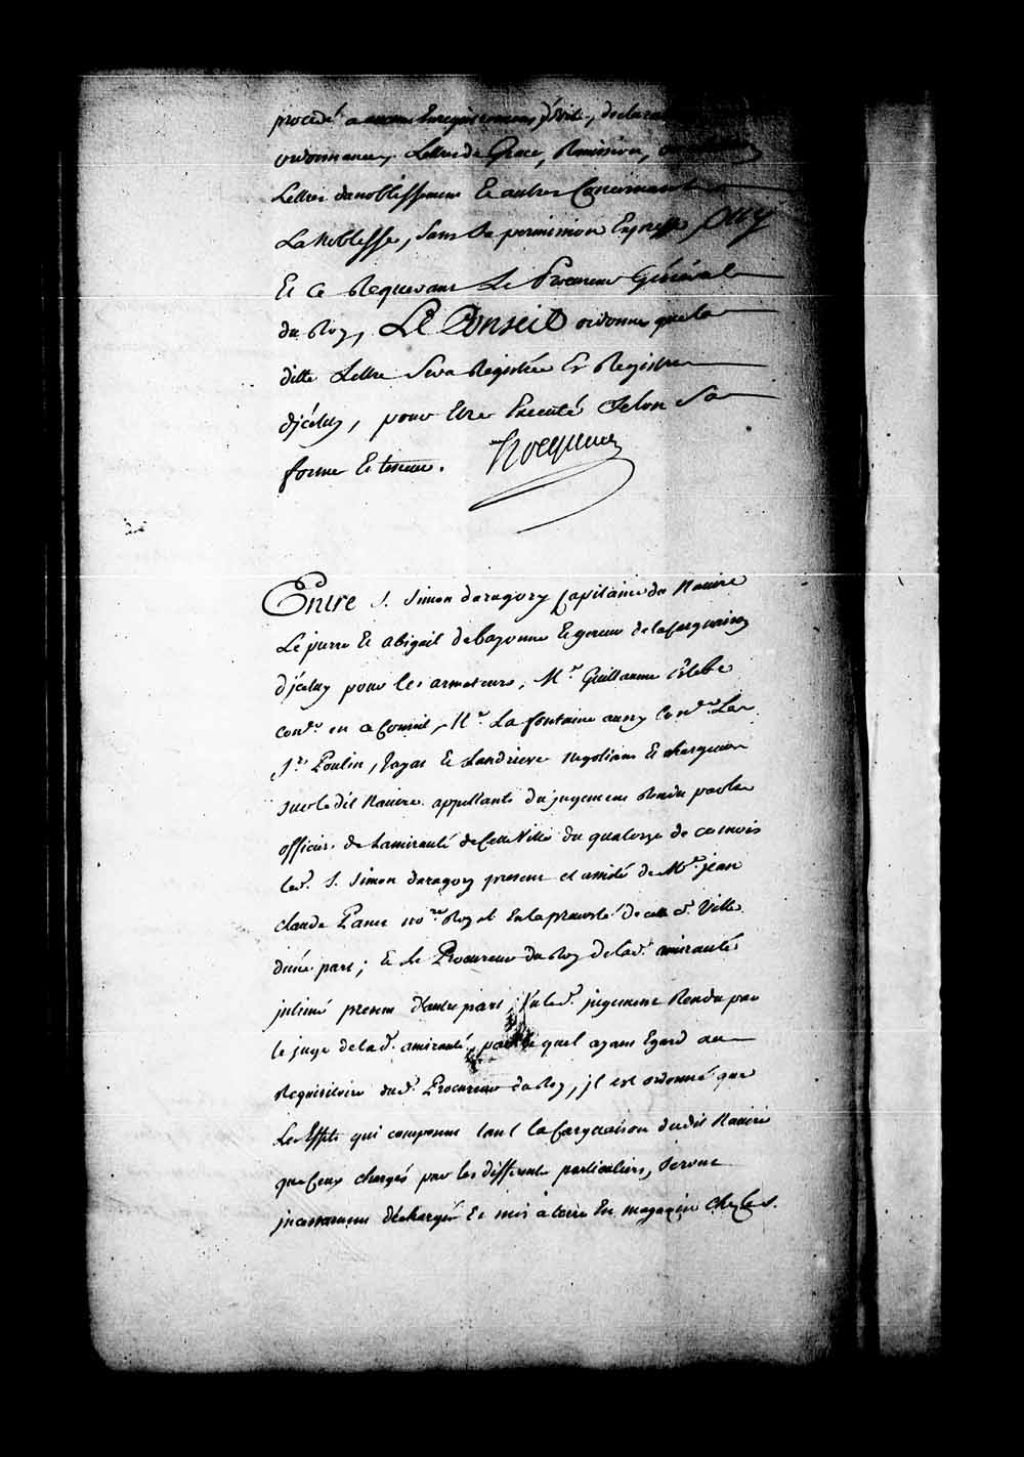 procédé a aucun Enregistrement d'Edit, declarat
ordonnance, Lettres de Grace, Remission,
Lettres danoblissement Et autres Concernant
La Noblesse, sans Sa permission Expresse, ouy
Et ce Requerant Le Procureur Général
du Roy, LE Conseil ordonne que la
ditte Lettre Sera Registrée Es Registres
d'jceluy, pour Etre Executé Selon Sa
forme Et teneur. Hocquart
Entre S. Simon daragory Capitaine du Navire
Le pierre Et abigail de bayonne Et gereur de la Cargaison
d'jceluy pour les armateurs, Me. Guillaume
coner. en ce Conseil, Me. La fontaine aussy Coner. Les
Srs. Poulin, Et Landrieve negotians Et chargeurs
sur le dit Navire appellants du jugement Rendu par les
officiers de Lamirauté de Cette Ville du quatorze de ce mois
led. S. Simon daragory present et assisté de Me. jean
claude Panet nore. Royal En la prevosté de cette d. Ville
d'une part; Et Le Procureur du Roy de lad. amirauté
jntimé present d'autre part, Vu led. jugement Rendu par
le juge de lad. amirauté, par le quel ayant Egard au
Requisitoire dud. Procureur du Roy, jl est ordonné que
Les Effets qui composent tant la Cargaison dudit Navire
que Ceux chargés par les differents particuliers, seront
jncessamment déchargés Et mis à terre En magazin Chez les.